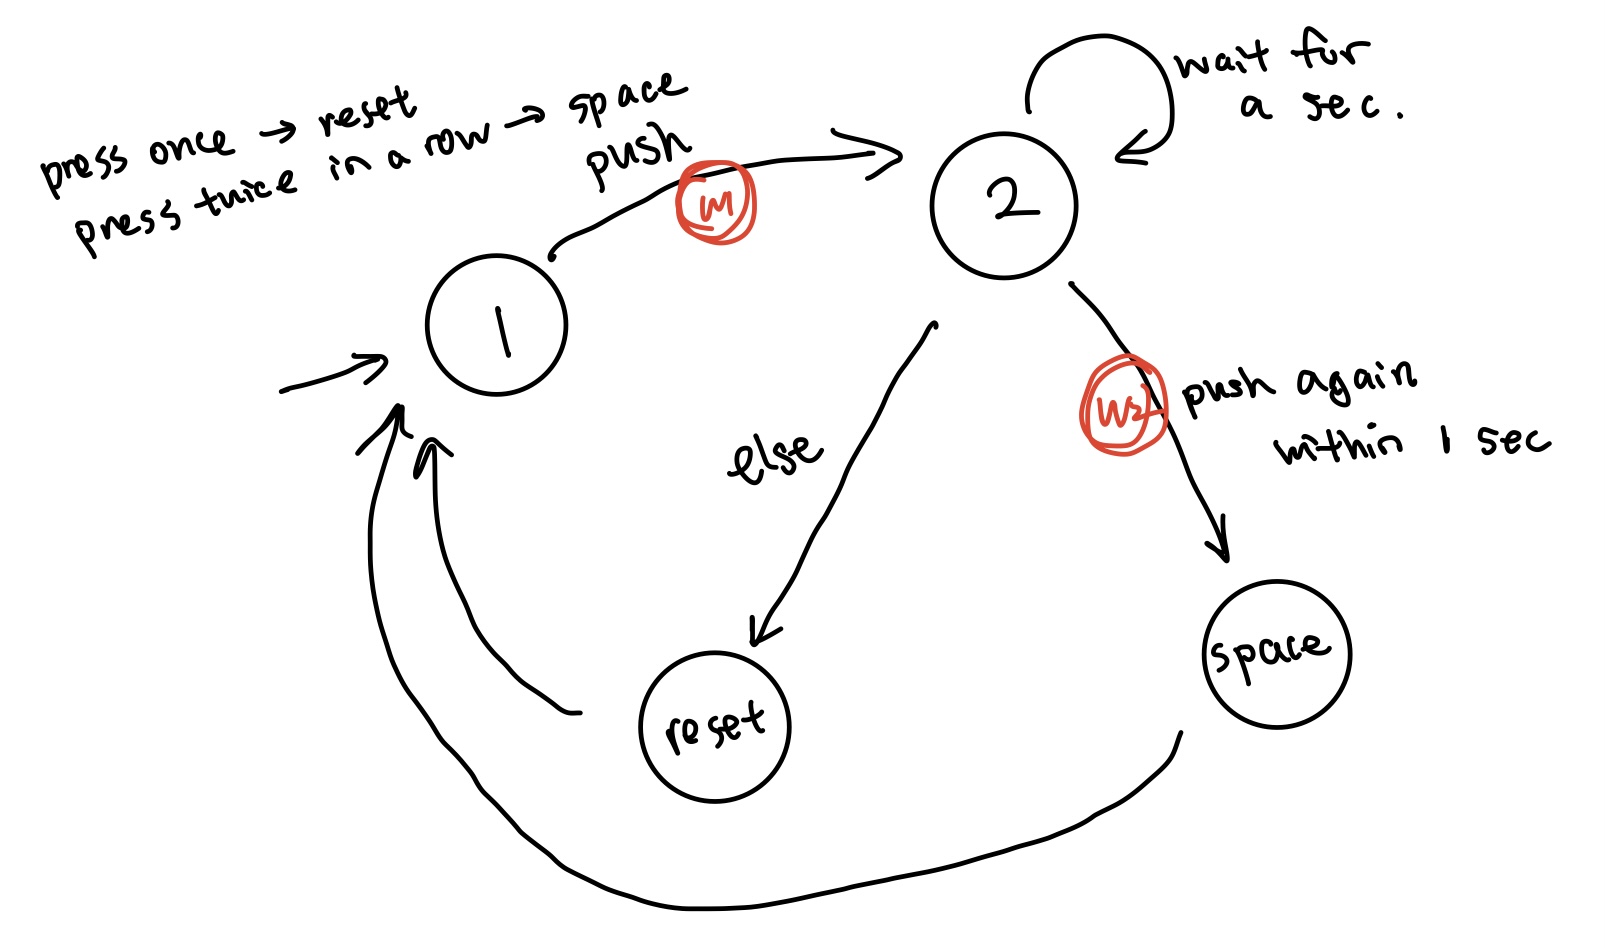 press once → reset
press twice in a row → space
push
wait for
a sec.
1
2
else
push again
within 1 sec
reset
space